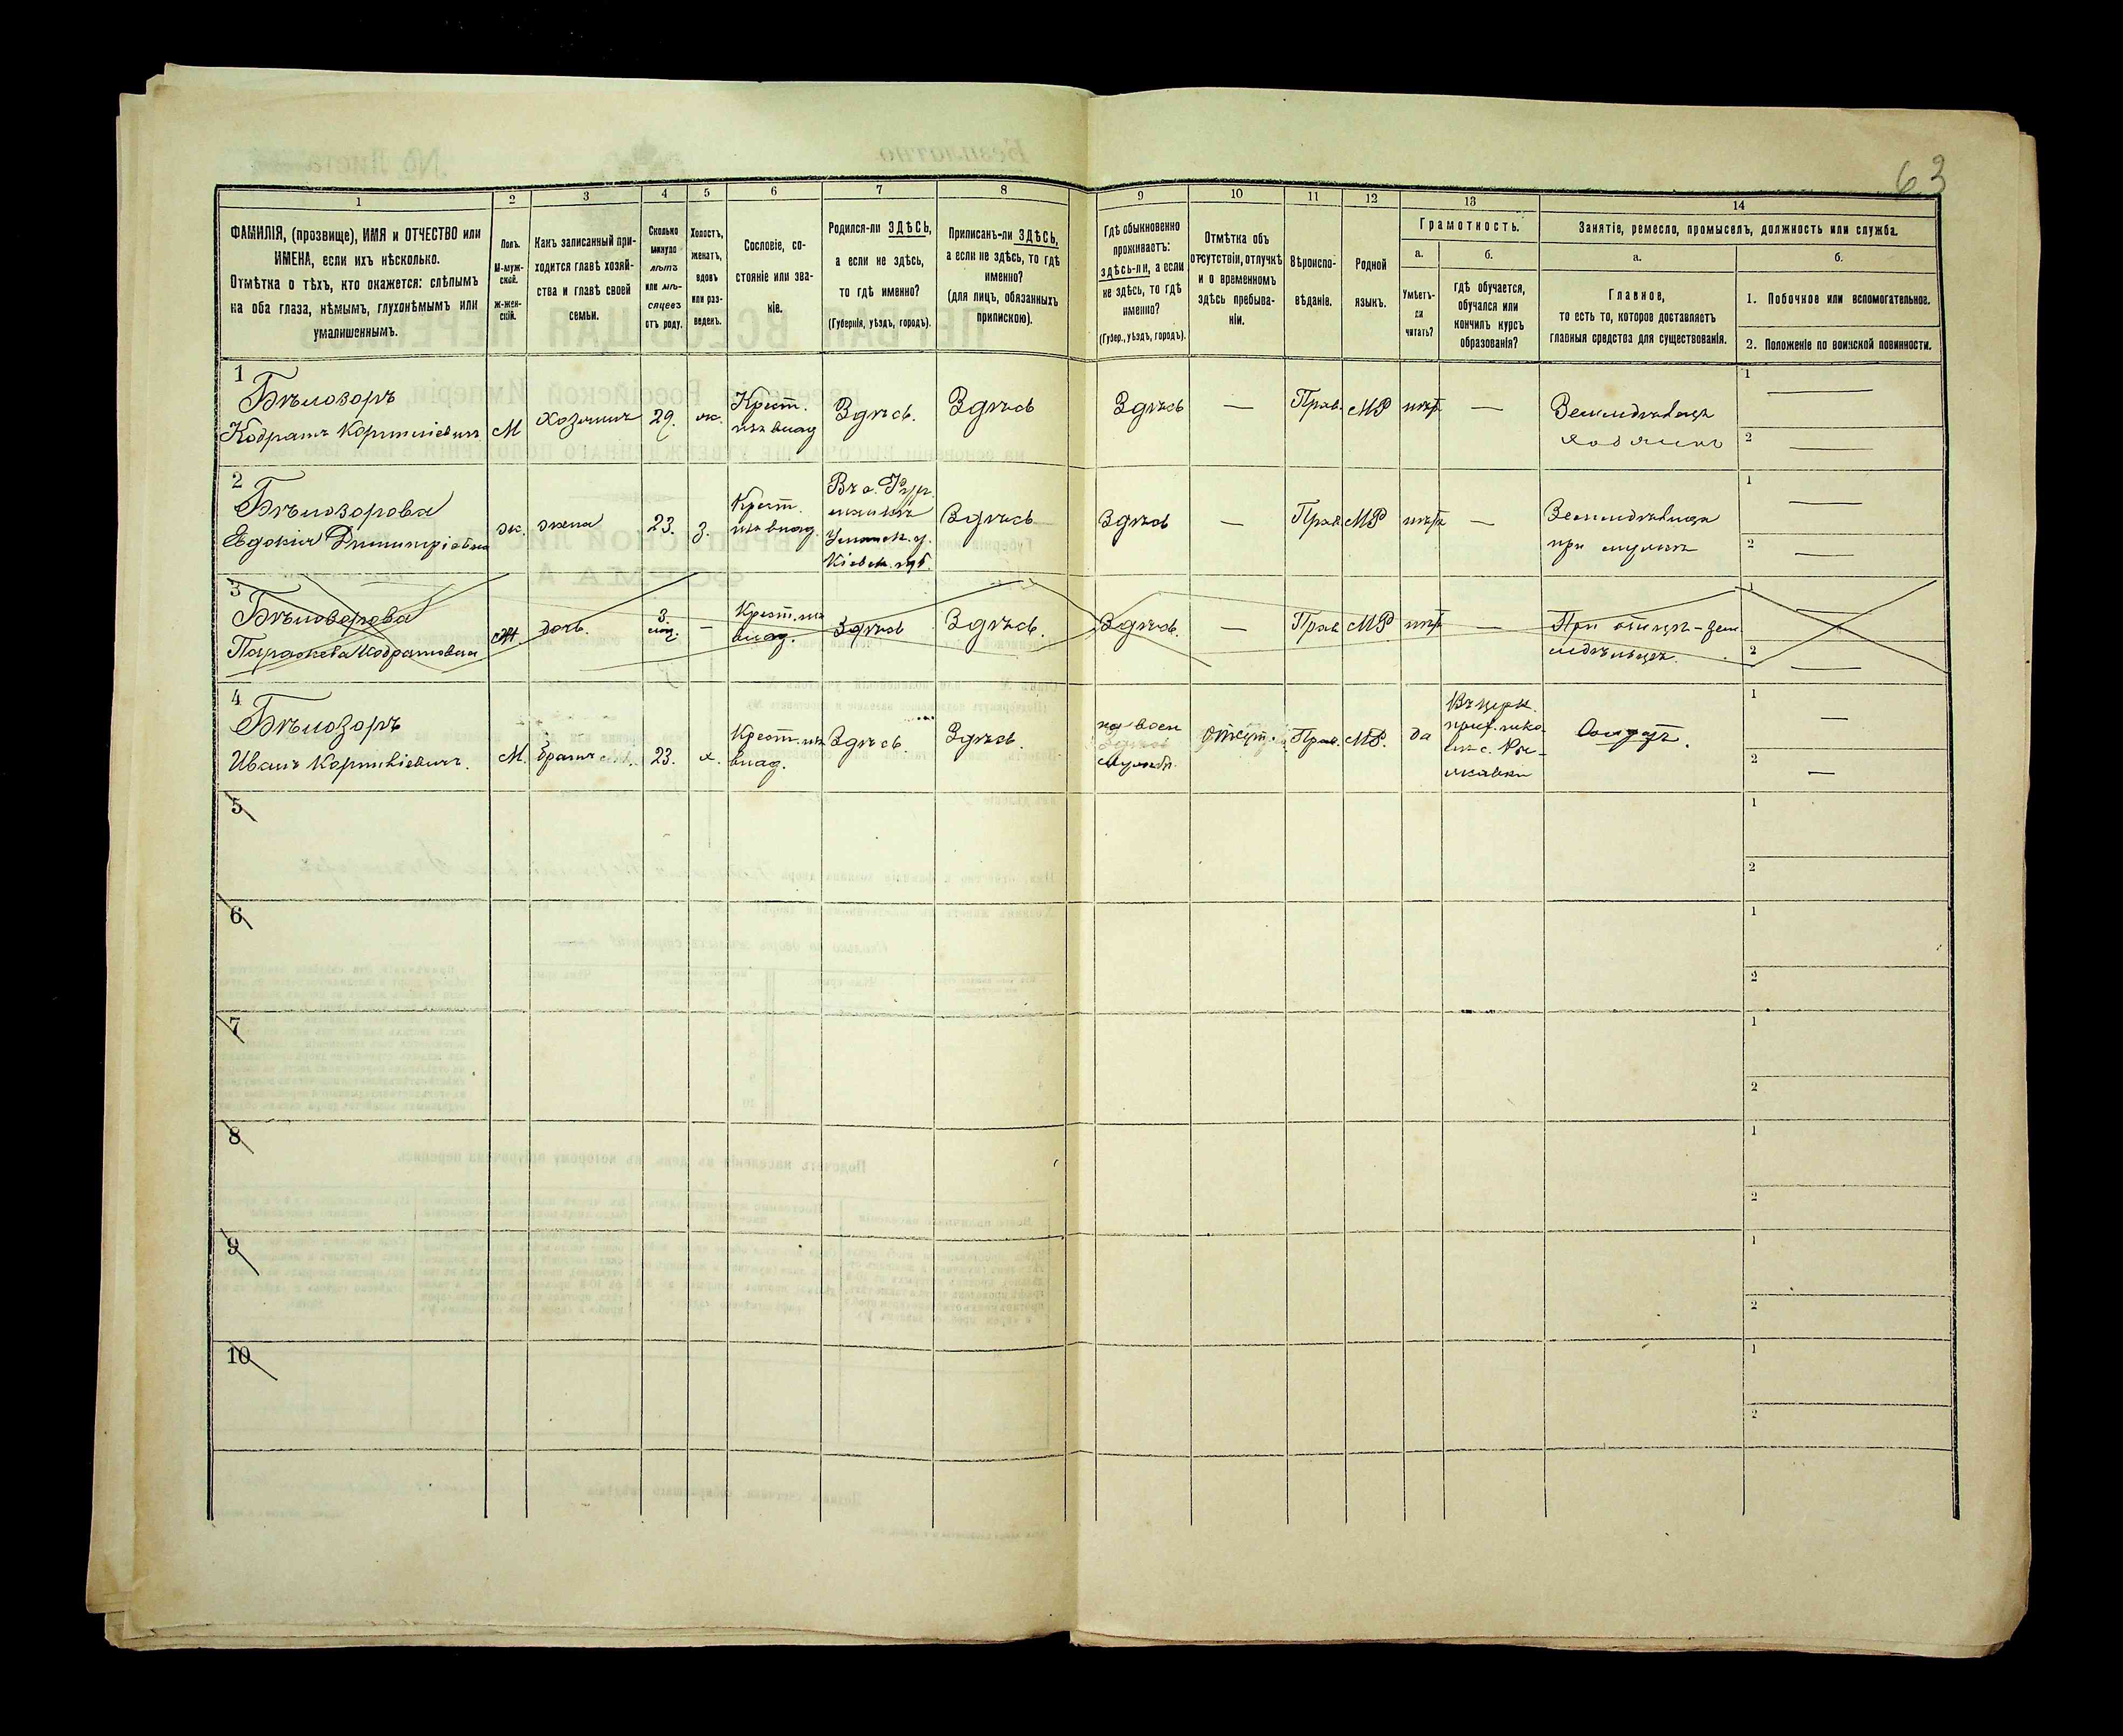 63
1 2 3 4 5 6 7 8 9 10 11 12 13 14
ФАМИЛІЯ, (прозвище), ИМЯ и ОТЧЕСТВО или
ИМЕНА, если ихъ нѣсколько.
Отмѣтка о тѣхъ, кто окажется: слѣпымъ
на оба глаза, нѣмымъ, глухонѣмымъ или
умалишеннымъ.
Полъ.
М-муж-
ской.
ж-жен-
скій.
Какъ записанный при-
ходится главѣ хозяй-
ства и главѣ своей
семьи.
Сколько
минуло
лѣтъ
или мѣ-
сяцевъ
отъ роду.
Холостъ,
женатъ,
вдовъ
или раз-
веденъ.
Сословіе, со-
стояніе или зва-
ніе.
Родился-ли ЗДѢСЬ,
а если не здѣсь,
то гдѣ именно?
(Губернія, уѣздъ, городъ).
Приписанъ-ли ЗДѢСЬ,
а если не здѣсь, то гдѣ
именно?
(для лицъ, обязанныхъ
припискою).
Гдѣ обыкновенно
проживаетъ:
здѣсь-ли, а если
не здѣсь, то гдѣ
именно?
(Губер., уѣздъ, городъ).
Отмѣтка объ
отсутствіи, отлучкѣ
и о временномъ
здѣсь пребыва-
ніи.
Вѣроиспо-
вѣданіе.
Родной
языкъ.
Грамотность.
а.
Умѣетъ-
ли
читать?
б.
гдѣ обучается,
обучался или
кончилъ курсъ
образованія?
Занятіе, ремесло, промыселъ, должность или служба.
а.
Главное,
то есть то, которое доставляетъ
главныя средства для существованія.
б.
1. Побочное или вспомогательное.
2. Положеніе по воинской повинности.
1
Бѣлозоръ
Кодратъ Корниліевичъ
М
Хозяинъ
29.
ж.
Крест.
изъ влад
Здѣсь.
Здѣсь
Здѣсь
—
Прав.
МР
нѣтъ
—
Земледѣлецъ
хозяинъ
1 —
2 —
2
Бѣлозорова
Евдокія Димитріевна
ж.
жена
23.
з.
Крест.
изъ влад.
Уманск. у.
Кіевск. губ.
Здѣсь
Здѣсь
—
Прав
МР
нѣтъ
—
Земледѣлица
при мужѣ
1 —
2 —
3
Бѣлозорова
Параскева Кодратовна
Ж.
дочь.
3
мѣс.
—
Крест. изъ
влад.
Здѣсь
Здѣсь.
Здѣсь.
—
Прав
МР
нѣтъ
—
При отцѣ - зем
ледѣльцѣ.
1 —
2 —
4
Бѣлозоръ
Иванъ Корниліевичъ.
М.
братъ
23.
х.
Крест. изъ
влад.
Здѣсь.
Здѣсь.
на воен
службѣ.
отсут.
Прав.
МР.
да
Въ церк.
прих. шко
Солдатъ.
1 —
2 —
5
1
2
6
1
2
7
1
2
8
1
2
9
1
2
10
1
2